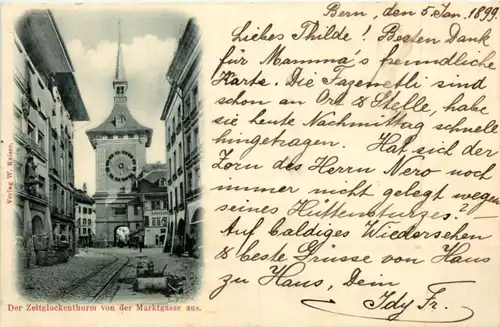 Bern, den 5 Jan. 1899
Liebes Thilde! Besten Dank
für Mamma's freundliche
Karte. Die Fazenetli sind
schon an Ort & Stelle, habe
sie heute Nachmittag schnell
hingetragen. Hat sich der
Zorn des Herrn Nero noch
immer nicht gelegt wegen
seines Hüttensturzes?
Auf baldiges Wiedersehen
& beste Grüsse von Haus
zu Haus, Dein
Idy Fr.
Verlag W. Kaiser.
Der Zeitglockenthurm von der Marktgasse aus.